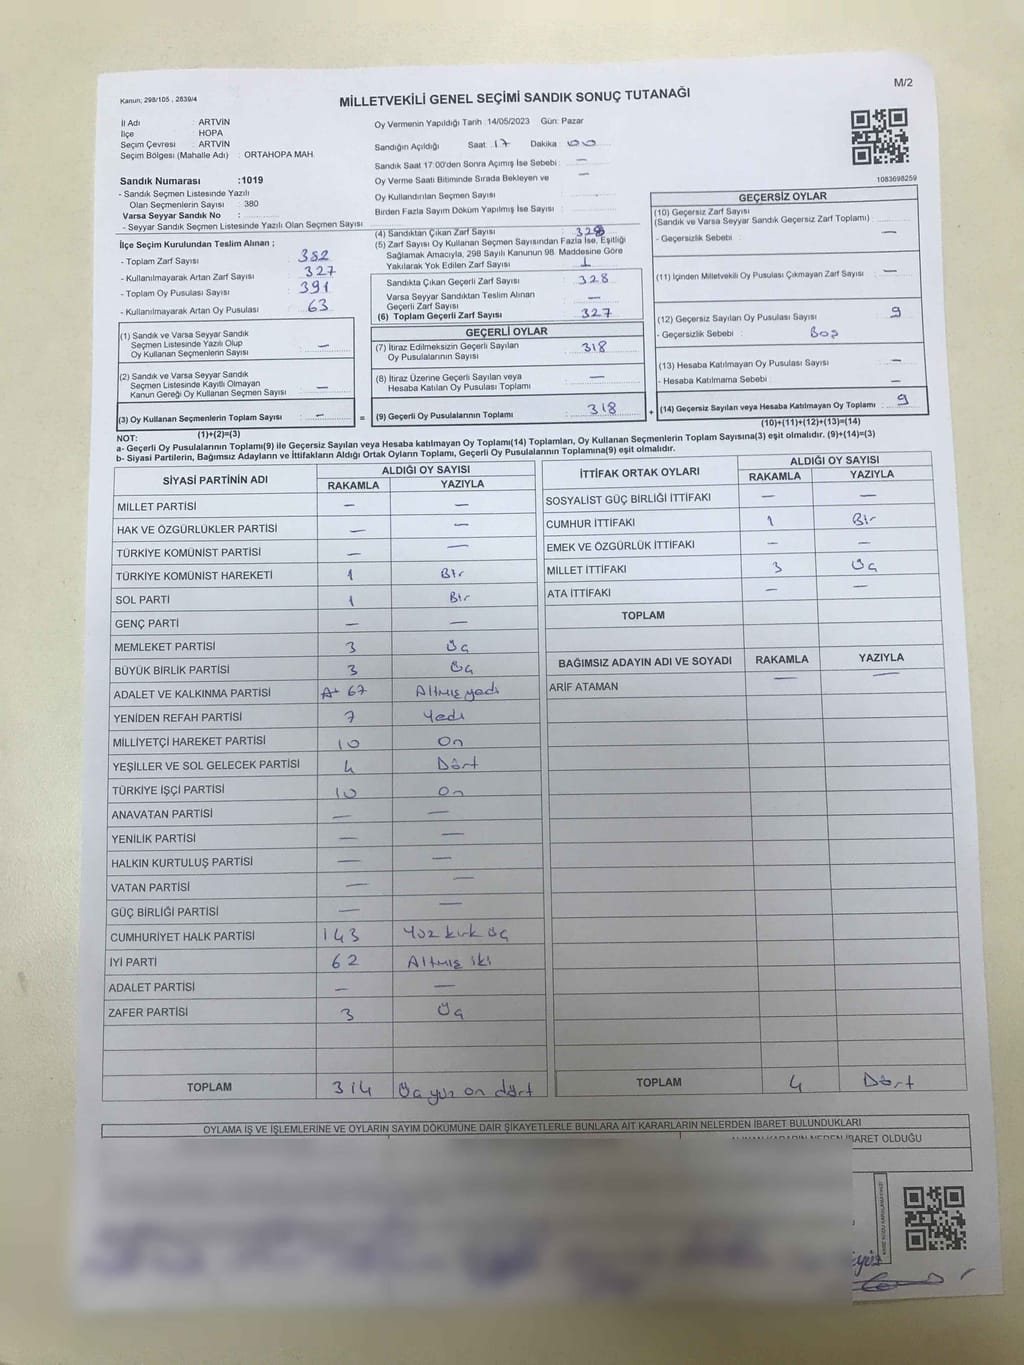 M/2
Kanun; 298/105 , 2839/4
MİLLETVEKİLİ GENEL SEÇİMİ SANDIK SONUÇ TUTANAĞI
İl Adı : ARTVİN
İlçe : HOPA
Seçim Çevresi : ARTVİN
Seçim Bölgesi (Mahalle Adı) : ORTAHOPA MAH.
Sandık Numarası :1019
- Sandık Seçmen Listesinde Yazılı
Olan Seçmenlerin Sayısı : 380
Varsa Seyyar Sandık No :
- Seyyar Sandık Seçmen Listesinde Yazılı Olan Seçmen Sayısı
İlçe Seçim Kurulundan Teslim Alınan ;
- Toplam Zarf Sayısı 382
- Kullanılmayarak Artan Zarf Sayısı 327
- Toplam Oy Pusulası Sayısı 391
- Kullanılmayarak Artan Oy Pusulası 63
(1) Sandık ve Varsa Seyyar Sandık
Seçmen Listesinde Yazılı Olup
Oy Kullanan Seçmenlerin Sayısı : —
(2) Sandık ve Varsa Seyyar Sandık
Seçmen Listesinde Kayıtlı Olmayan
Kanun Gereği Oy Kullanan Seçmen Sayısı : —
(3) Oy Kullanan Seçmenlerin Toplam Sayısı : — =
(1)+(2)=(3)
Oy Vermenin Yapıldığı Tarih :14/05/2023 Gün: Pazar
Sandığın Açıldığı Saat 17 Dakika 00
Sandık Saat 17:00'den Sonra Açımış İse Sebebi : —
Oy Verme Saati Bitiminde Sırada Bekleyen ve —
Oy Kullandırılan Seçmen Sayısı
Birden Fazla Sayım Döküm Yapılmış İse Sayısı :
(4) Sandıktan Çıkan Zarf Sayısı : 328
(5) Zarf Sayısı Oy Kullanan Seçmen Sayısından Fazla İse, Eşitliği
Sağlamak Amacıyla, 298 Sayılı Kanunun 98. Maddesine Göre
Yakılarak Yok Edilen Zarf Sayısı : 1
Sandıkta Çıkan Geçerli Zarf Sayısı : 328
Varsa Seyyar Sandıktan Teslim Alınan
Geçerli Zarf Sayısı : —
(6) Toplam Geçerli Zarf Sayısı : 327
GEÇERLİ OYLAR
(7) İtiraz Edilmeksizin Geçerli Sayılan
Oy Pusulalarının Sayısı : 318
(8) İtiraz Üzerine Geçerli Sayılan veya
Hesaba Katılan Oy Pusulası Toplamı : —
(9) Geçerli Oy Pusulalarının Toplamı : 318 +
1083698259
GEÇERSİZ OYLAR
(10) Geçersiz Zarf Sayısı
(Sandık ve Varsa Seyyar Sandık Geçersiz Zarf Toplamı) : —
- Geçersizlik Sebebi :
(11) İçinden Milletvekili Oy Pusulası Çıkmayan Zarf Sayısı : —
(12) Geçersiz Sayılan Oy Pusulası Sayısı : 9
- Geçersizlik Sebebi : Boş
(13) Hesaba Katılmayan Oy Pusulası Sayısı : —
- Hesaba Katılmama Sebebi : —
(14) Geçersiz Sayılan veya Hesaba Katılmayan Oy Toplamı : 9
(10)+(11)+(12)+(13)=(14)
NOT:
a- Geçerli Oy Pusulalarının Toplamı(9) ile Geçersiz Sayılan veya Hesaba katılmayan Oy Toplamı(14) Toplamları, Oy Kullanan Seçmenlerin Toplam Sayısına(3) eşit olmalıdır. (9)+(14)=(3)
b- Siyasi Partilerin, Bağımsız Adayların ve İttifakların Aldığı Ortak Oyların Toplamı, Geçerli Oy Pusulalarının Toplamına(9) eşit olmalıdır.
SİYASİ PARTİNİN ADI ALDIĞI OY SAYISI
RAKAMLA YAZIYLA
MİLLET PARTİSİ — —
HAK VE ÖZGÜRLÜKLER PARTİSİ — —
TÜRKİYE KOMÜNİST PARTİSİ — —
TÜRKİYE KOMÜNİST HAREKETİ 1 Bir
SOL PARTİ 1 Bir
GENÇ PARTİ — —
MEMLEKET PARTİSİ 3 Üç
BÜYÜK BİRLİK PARTİSİ 3 Üç
ADALET VE KALKINMA PARTİSİ 67 Altmış yedi
YENİDEN REFAH PARTİSİ 7 Yedi
MİLLİYETÇİ HAREKET PARTİSİ 10 On
YEŞİLLER VE SOL GELECEK PARTİSİ 4 Dört
TÜRKİYE İŞÇİ PARTİSİ 10 On
ANAVATAN PARTİSİ — —
YENİLİK PARTİSİ — —
HALKIN KURTULUŞ PARTİSİ — —
VATAN PARTİSİ — —
GÜÇ BİRLİĞİ PARTİSİ — —
CUMHURİYET HALK PARTİSİ 143 Yüz kırk üç
İYİ PARTİ 62 Altmış iki
ADALET PARTİSİ — —
ZAFER PARTİSİ 3 Üç
TOPLAM 314 Üç yüz on dört
İTTİFAK ORTAK OYLARI ALDIĞI OY SAYISI
RAKAMLA YAZIYLA
SOSYALİST GÜÇ BİRLİĞİ İTTİFAKI — —
CUMHUR İTTİFAKI 1 Bir
EMEK VE ÖZGÜRLÜK İTTİFAKI — —
MİLLET İTTİFAKI 3 Üç
ATA İTTİFAKI — —
TOPLAM
BAĞIMSIZ ADAYIN ADI VE SOYADI RAKAMLA YAZIYLA
ARİF ATAMAN — —
TOPLAM 4 Dört
OYLAMA İŞ VE İŞLEMLERİNE VE OYLARIN SAYIM DÖKÜMÜNE DAİR ŞİKAYETLERLE BUNLARA AİT KARARLARIN NELERDEN İBARET BULUNDUKLARI
İBARET OLDUĞU